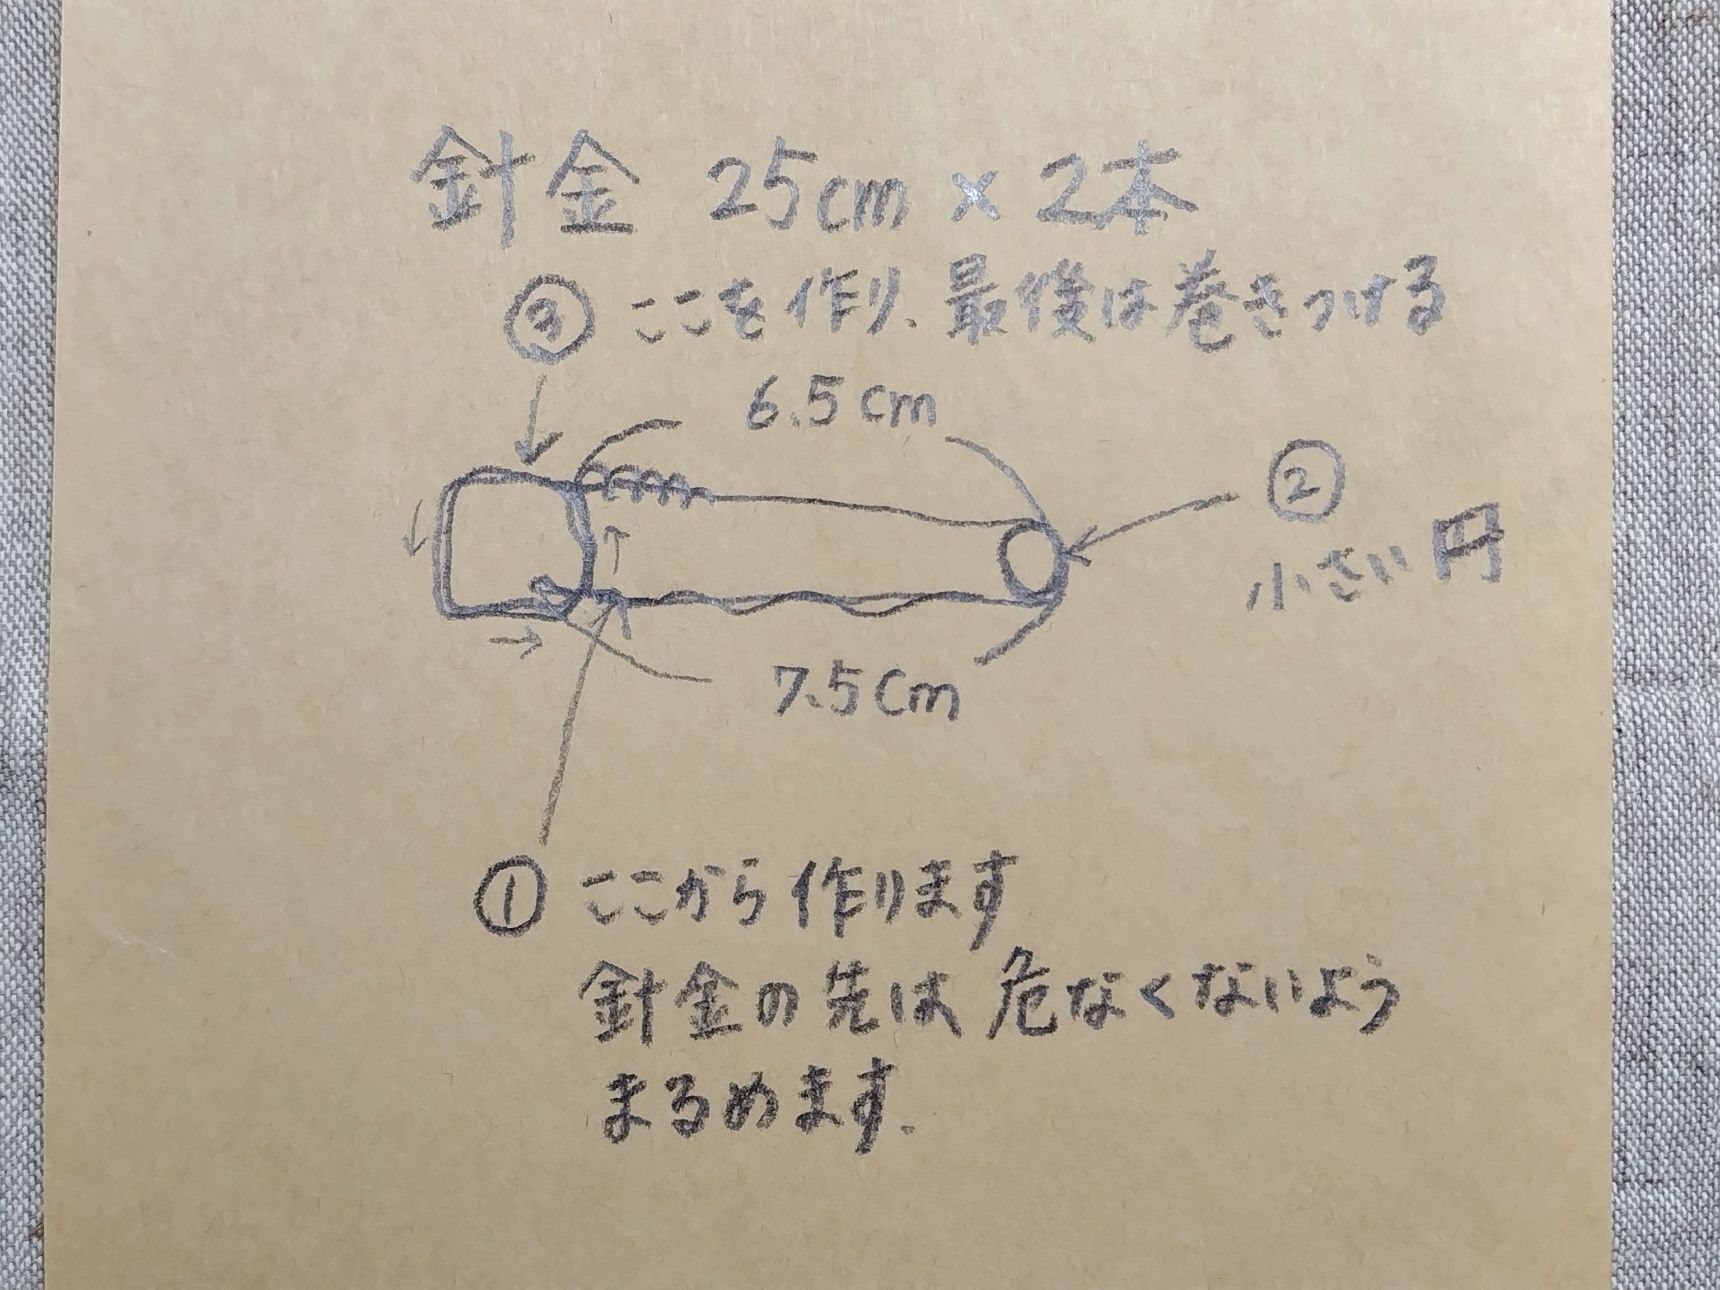 針金 25cm × 2本
③ ここを作り、最後は巻きつける
6.5cm
②
小さい円
7.5cm
① ここから作ります
針金の先は危なくないよう
まるめます.